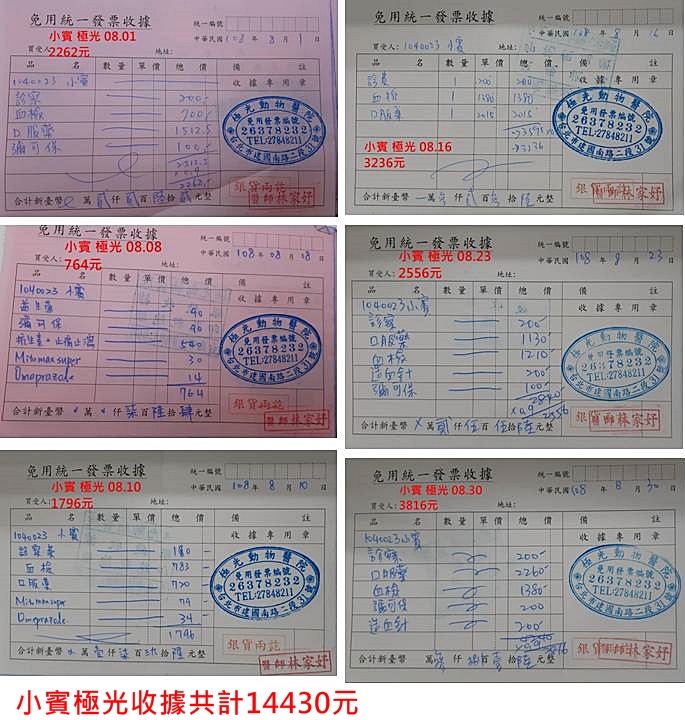 免用統一發票收據
小賓 極光 08.01
2262元
統一編號
中華民國 108 年 8 月 1 日
買受人:
地址:
品 名 數量 單價 總 價 備 註
1040023 小賓
收據專用章
診察 200
血檢 700
口服藥 1512.5
彌可保 100
2512.5
×0.9
2262
極光動物醫院
免用發票編號
26378232
TEL:27848211
台北市建國南路二段31號
銀貨兩訖
醫師林家妤
合計新臺幣 0 萬 貳 仟 貳 百 陸 拾 貳 元整
免用統一發票收據
統一編號
中華民國 108 年 8 月 16 日
買受人: 1040023 小賓
地址:
品 名 數量 單價 總 價 備 註
收據專用章
診費 1 200 200
血檢 1 1380 1380
口服藥 1 2015 2015
3595
3236
小賓 極光 08.16
3236元
極光動物醫院
免用發票編號
26378232
TEL:27848211
台北市建國南路二段31號
銀貨兩訖
醫師林家妤
合計新臺幣 萬 參 仟 貳 百 參 拾 陸 元整
免用統一發票收據
小賓 極光 08.08
764元
統一編號
中華民國 108 年 08 月 08 日
買受人:
地址:
品 名 數量 單價 總 價 備 註
1040023 小賓
收據專用章
益生菌 90
彌可保 90
抗生素+止痛止瀉 540
Mitomax super 30
Omeprazole 14
764
極光動物醫院
免用發票編號
26378232
TEL:27848211
台北市建國南路二段31號
銀貨兩訖
醫師林家妤
合計新臺幣 萬 仟 柒 百 陸 拾 肆 元整
免用統一發票收據
小賓 極光 08.23
2556元
統一編號
中華民國 108 年 8 月 23 日
買受人:
地址:
品 名 數量 單價 總 價 備 註
1040023 小賓
收據專用章
診察 200
口服藥 1130
血檢 1210
造血針 200
彌可保 100
2840
×0.9
2556
極光動物醫院
免用發票編號
26378232
TEL:27848211
台北市建國南路二段31號
銀貨兩訖
醫師林家妤
合計新臺幣 × 萬 貳 仟 伍 百 伍 拾 陸 元整
免用統一發票收據
小賓 極光 08.10
1796元
統一編號
中華民國 108 年 8 月 10 日
買受人:
地址:
品 名 數量 單價 總 價 備 註
1040023 小賓
收據專用章
診察費 180
血檢 783
口服藥 720
Mitomax super 79
Omeprazole 34
1796
極光動物醫院
免用發票編號
26378232
TEL:27848211
台北市建國南路二段31號
銀貨兩訖
醫師林家妤
合計新臺幣 萬 壹 仟 柒 百 玖 拾 陸 元整
免用統一發票收據
小賓 極光 08.30
3816元
統一編號
中華民國 108 年 8 月 30 日
買受人:
地址:
品 名 數量 單價 總 價 備 註
1040023 小賓
收據專用章
診察 200
口服藥 2260
血檢 1380
彌可保 200
造血針 200
4240
×0.9 3816
極光動物醫院
免用發票編號
26378232
TEL:27848211
台北市建國南路二段31號
銀貨兩訖
醫師林家妤
合計新臺幣 萬 參 仟 捌 百 壹 拾 陸 元整
小賓極光收據共計14430元